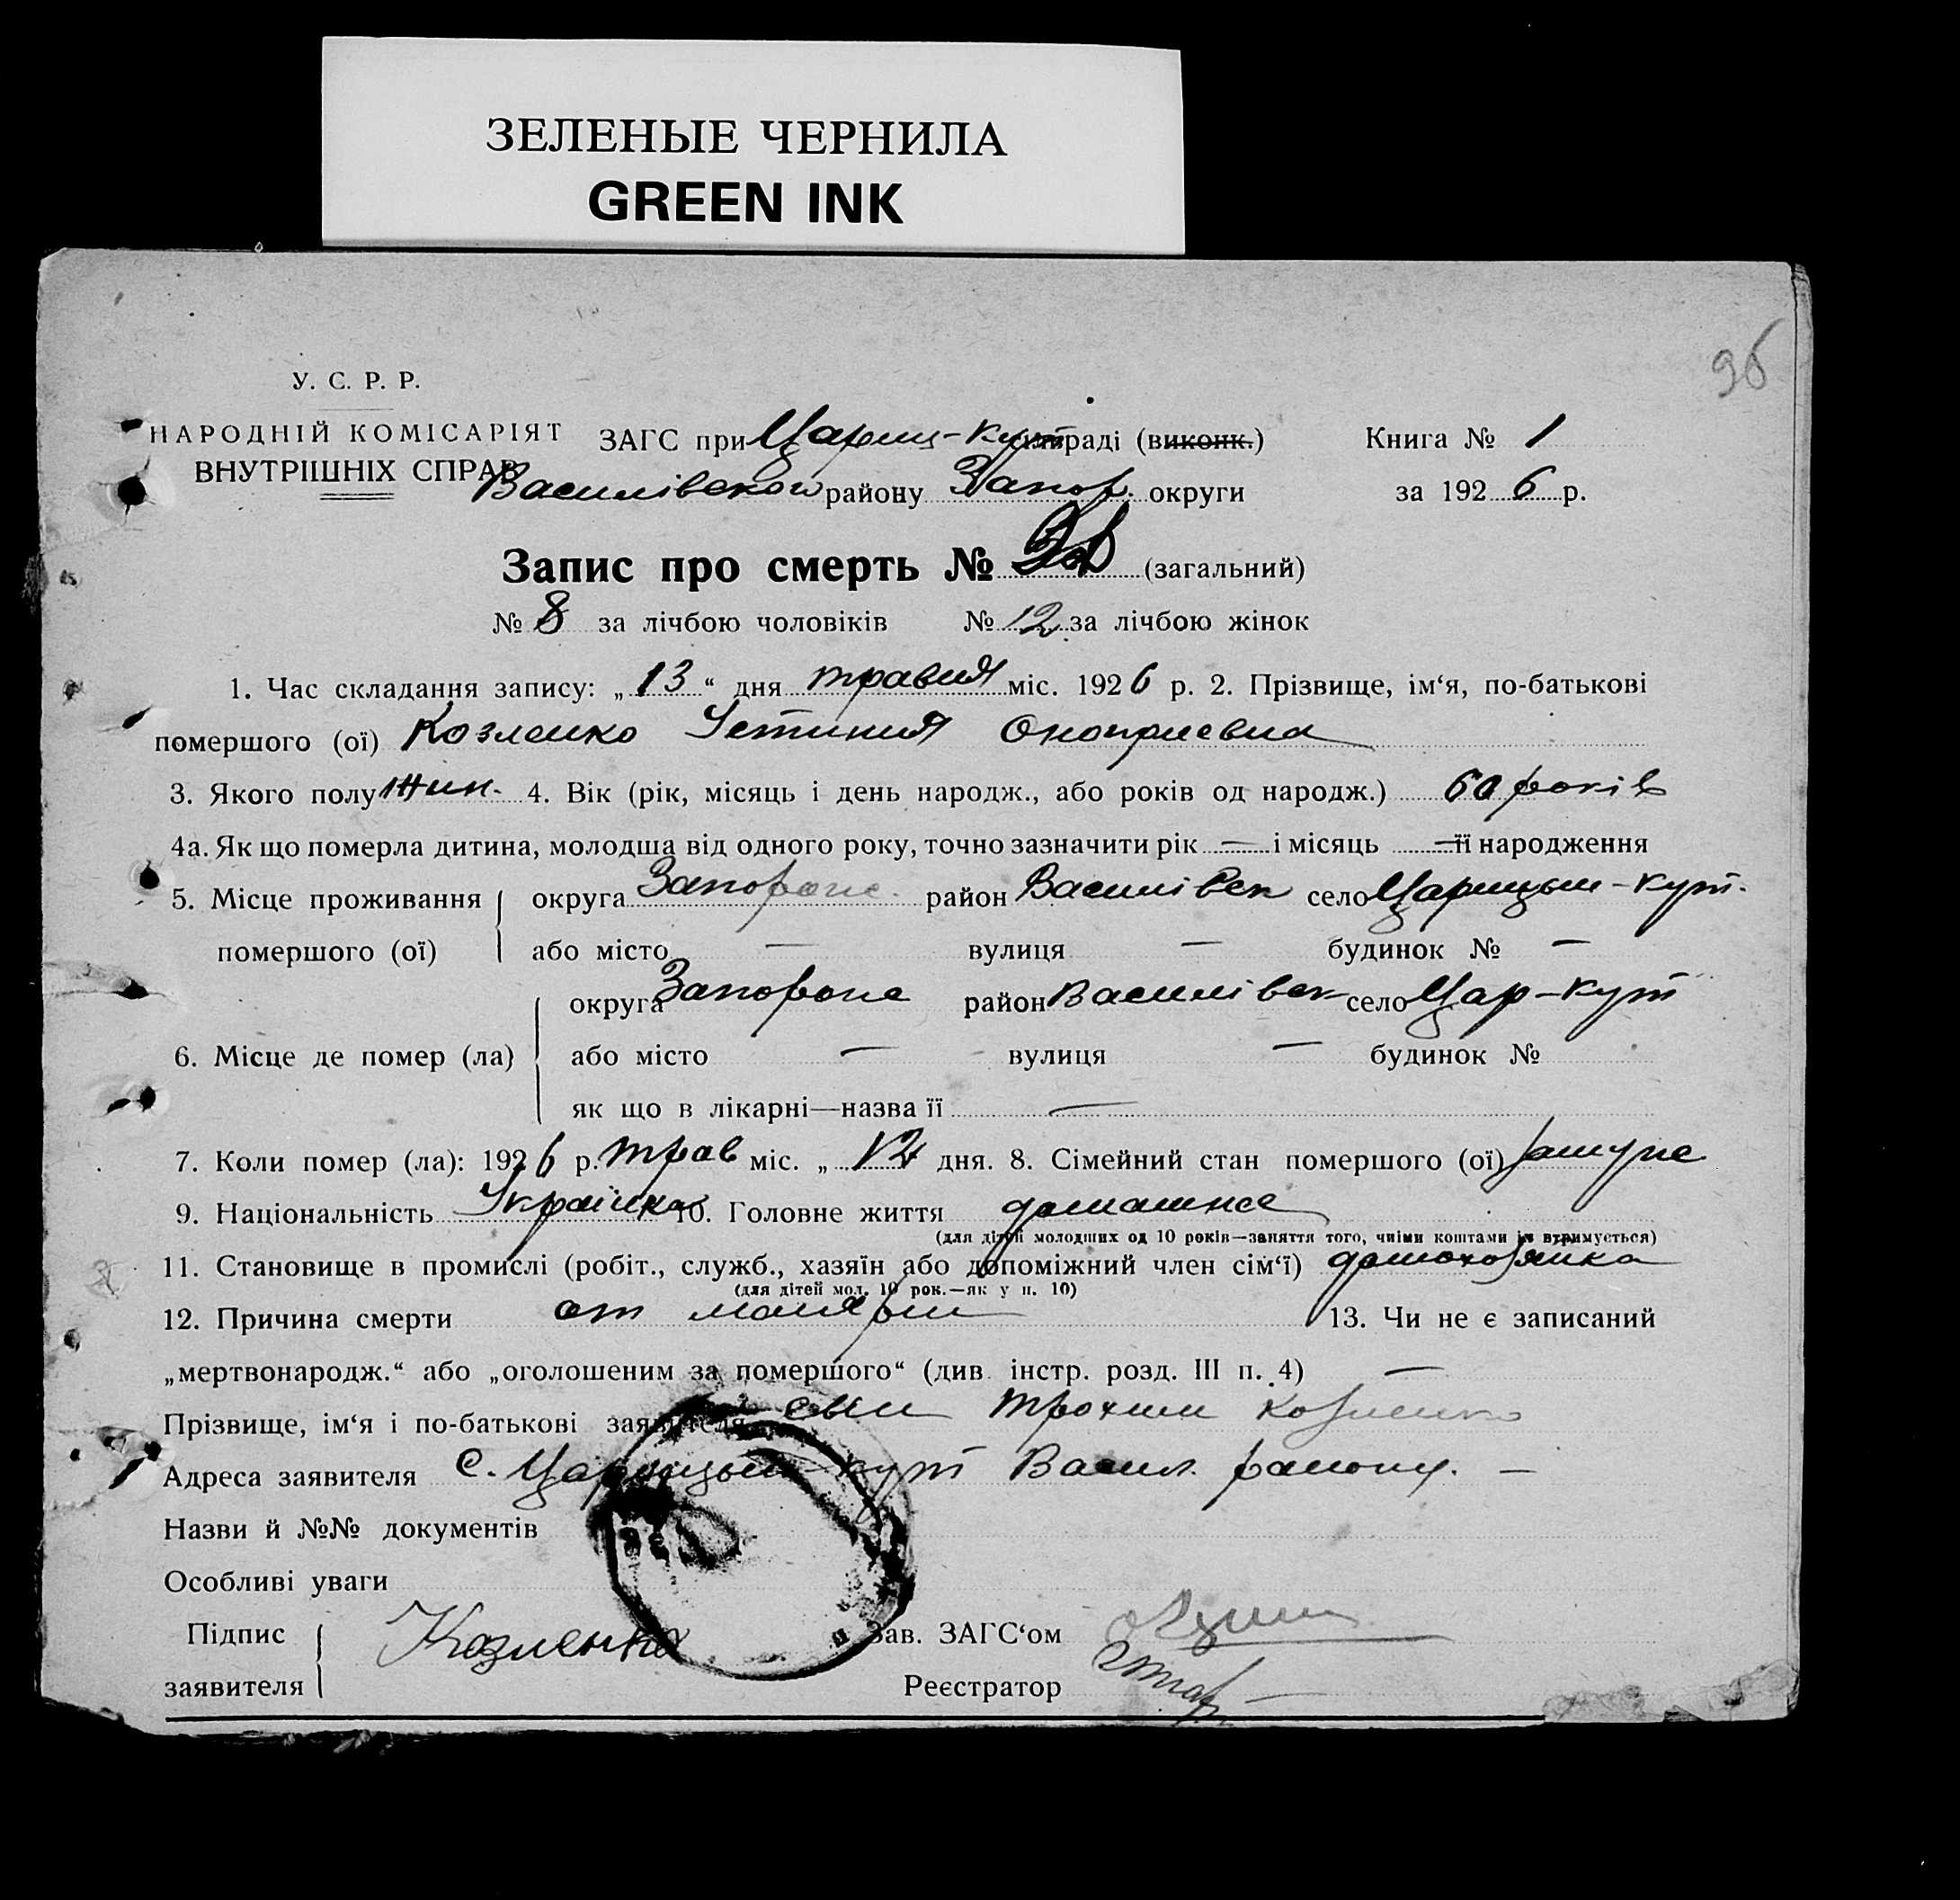 ЗЕЛЕНЫЕ ЧЕРНИЛА
GREEN INK
96
У. С. Р. Р.
НАРОДНІЙ КОМІСАРІЯТ
ВНУТРІШНІХ СПРАВ
ЗАГС при Цариц-Кут раді (виконк.) Книга № 1
Василівского району Запор. округи за 1926 р.
Запис про смерть № (загальний)
№ 8 за лічбою чоловіків № 12 за лічбою жінок
1. Час складання запису: „13“ дня травня міс. 1926 р. 2. Прізвище, ім‘я, по-батькові
помершого (ої) Козленко Устиния Оноприевна
3. Якого полу жин. 4. Вік (рік, місяць і день народж., або років од народж.) 60 років
4а. Як що померла дитина, молодша від одного року, точно зазначити рік — і місяць — її народження
5. Місце проживання помершого (ої) округа Запорож. район Василівск село Царицын-кут.
або місто — вулиця — будинок № —
6. Місце де помер (ла) округа Запорож район Василівск село Цар-кут
або місто — вулиця — будинок №
як що в лікарні—назва її —
7. Коли помер (ла): 1926 р. трав міс. „12 дня. 8. Сімейний стан помершого (ої) замуже
9. Національність Українка 10. Головне життя домашнє
(для дітей молодших од 10 років—заняття того, чиїми коштами їх втримується)
11. Становище в промислі (робіт., служб., хазяїн або допоміжний член сім‘ї) домохозяйка
(для дітей мол. 10 рок.—як у п. 10)
12. Причина смерти от малярии 13. Чи не є записаний
„мертвонародж.“ або „оголошеним за помершого“ (див. інстр. розд. III п. 4) —
Прізвище, ім‘я і по-батькові заявителя сын Трохим Козленко
Адреса заявителя с. Царицын-кут Васил. району. —
Назви й №№ документів
Особливі уваги
Підпис заявителя Козленко
Зав. ЗАГС‘ом
Реєстратор